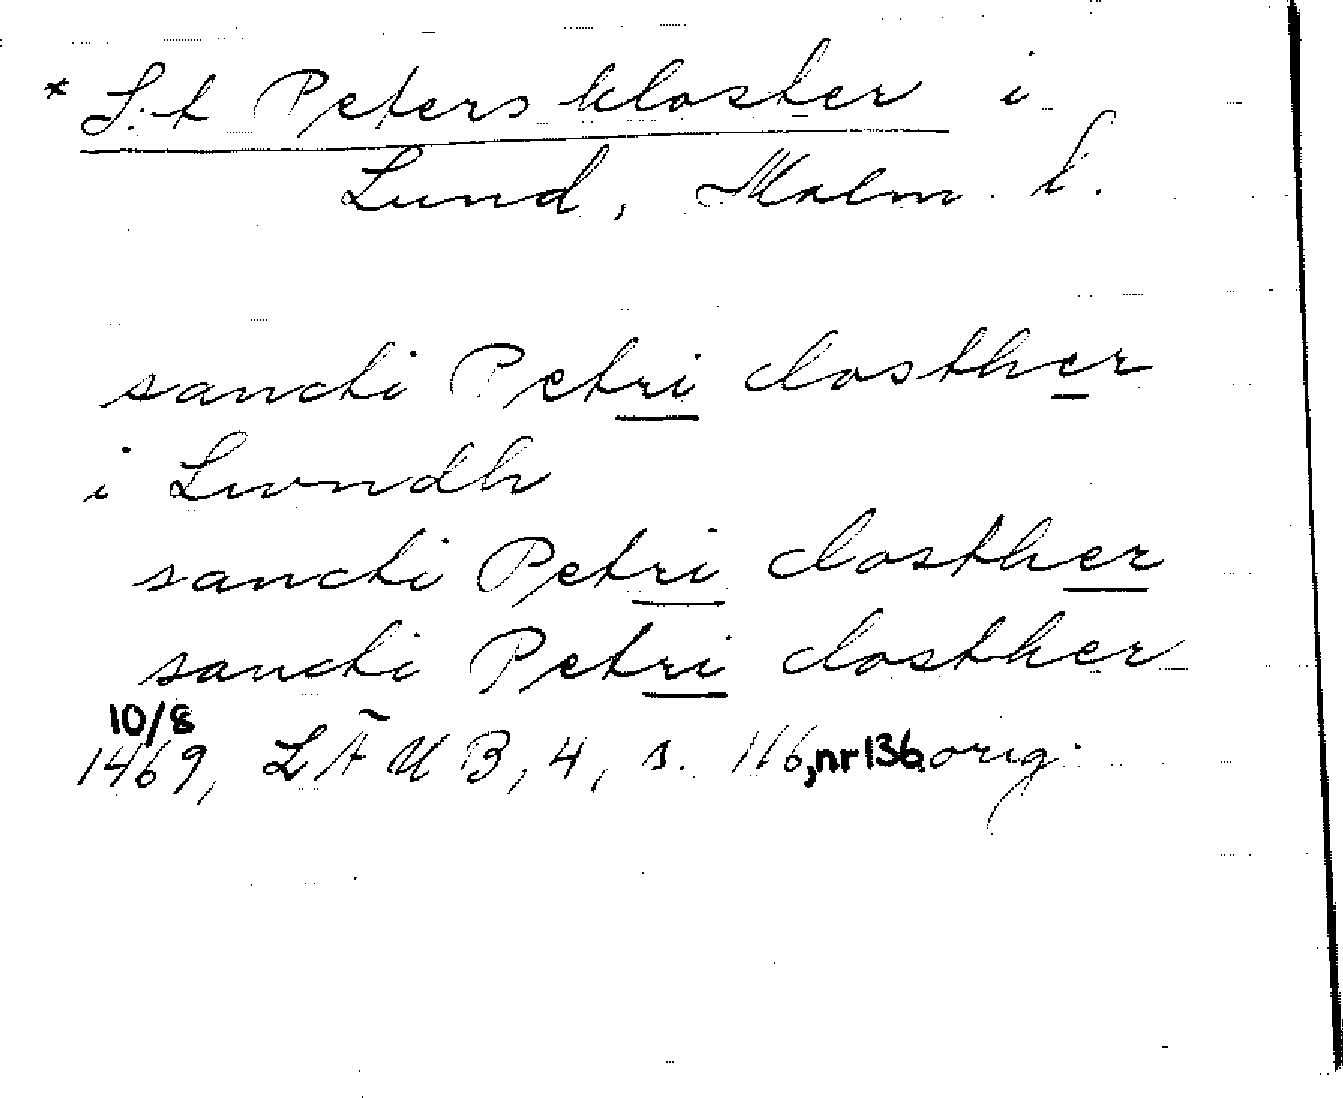 * S:t Peters kloster i
Lund, Malm. l.
sancti Petri closther
i Lwndh
sancti Petri closther
sancti Petri closther
10/8
1469, LÄUB, 4, s. 116, nr 136. orig.